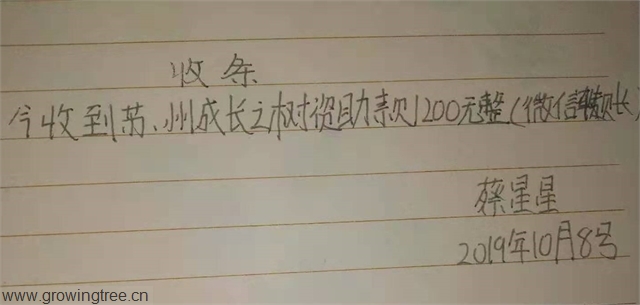 收条
今收到苏州成长之树资助款1200元整(微信转账)
蔡星星
2019年10月8号
www.growingtree.cn